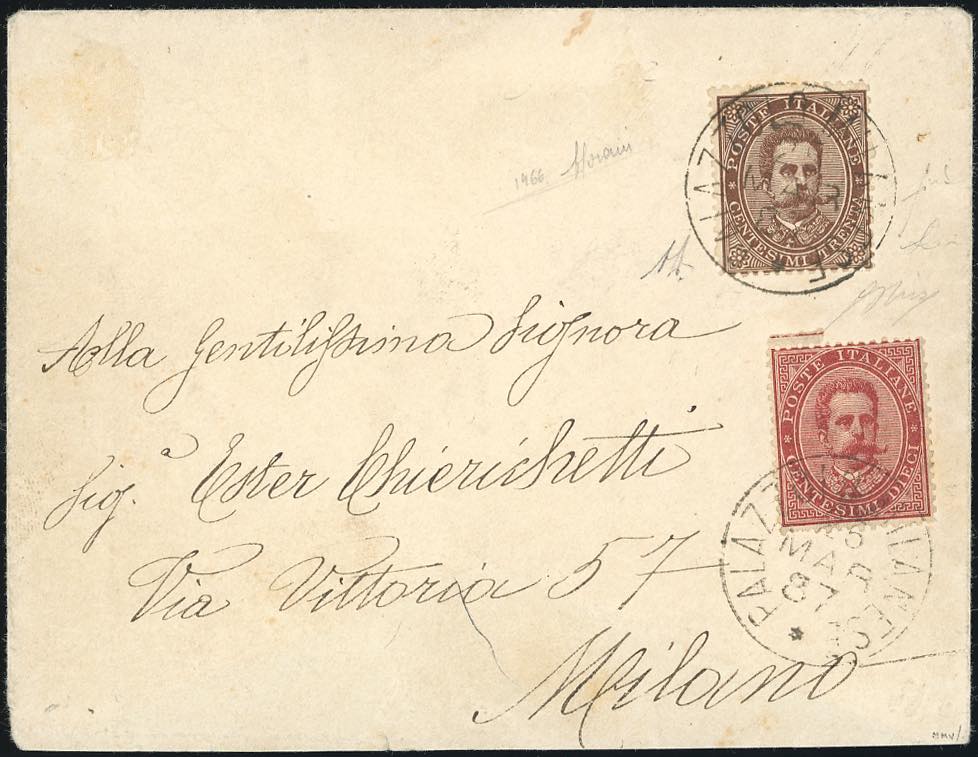 POSTE ITALIANE
CENTESIMI TRENTA
1966
Alla Gentilissima Signora
Sig.ª Ester Chierichetti
Via Vittoria 57
Milano
POSTE ITALIANE
CENTESIMI DIECI
PALAZZOLO MILANESE
26
MAR
87